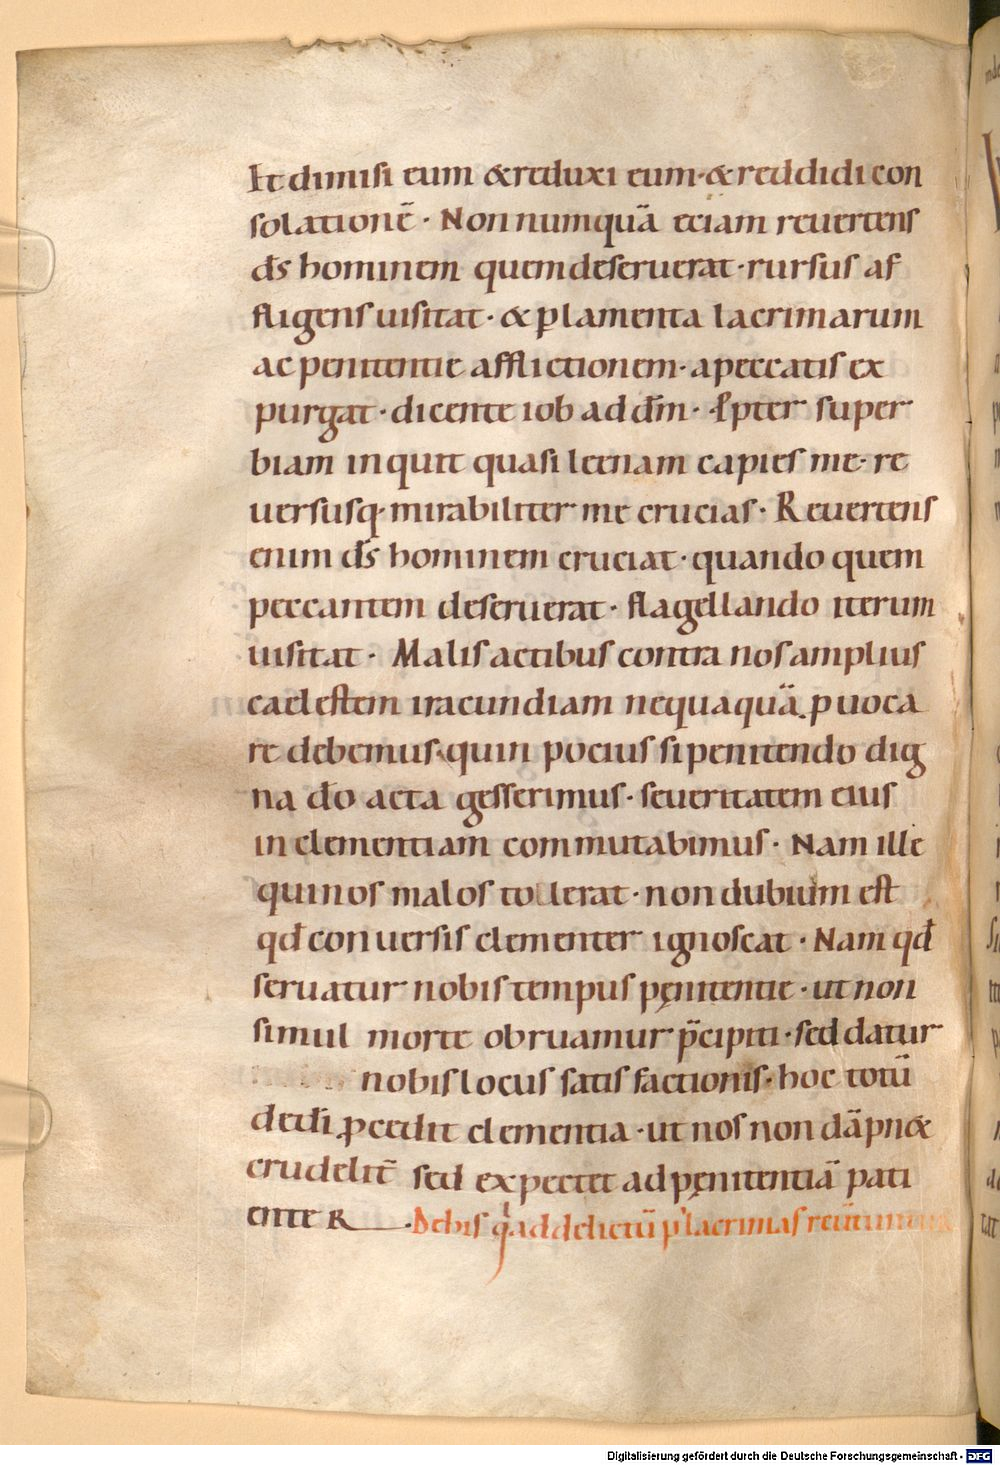 Et dimisi eum & reduxi eum · & reddidi con
solationē · Non numquā eciam reuertens
ds̄ hominem quem deseruerat · rursus af
fligens uisitat · & ꝑ lamenta lacrimarum
ac penitentie afflictionem · a peccatis ex
purgat · dicente iob ad dm̄ · Ꝓpter super
biam inquit quasi leenam capies me · re
uersusq· mirabiliter me crucias · Reuertens
enim ds̄ hominem cruciat · quando quem
peccantem deseruerat · flagellando iterum
uisitat · Malis actibus contra nos amplius
caelestem iracundiam nequaquā ꝓuoca
re debemus · quin pocius si penitendo dig
na do̅ acta gesserimus · seueritatem eius
in clementiam commutabimus · Nam ille
qui nos malos tollerat · non dubium est
qd̄ conuersis clementer ignoscat · Nam qd̄
seruatur nobis tempus pęnitentie · ut non
simul morte obruamur p̄cipiti · sed datur
nobis locus satisfactionis · hoc totū
de di̅ ꝓcedit clementia · ut nos non dāpn&
crudelit̄ sed expectet ad pęnitentiā pati
enter · De his q̍ ad delictū p̍ lacrimas